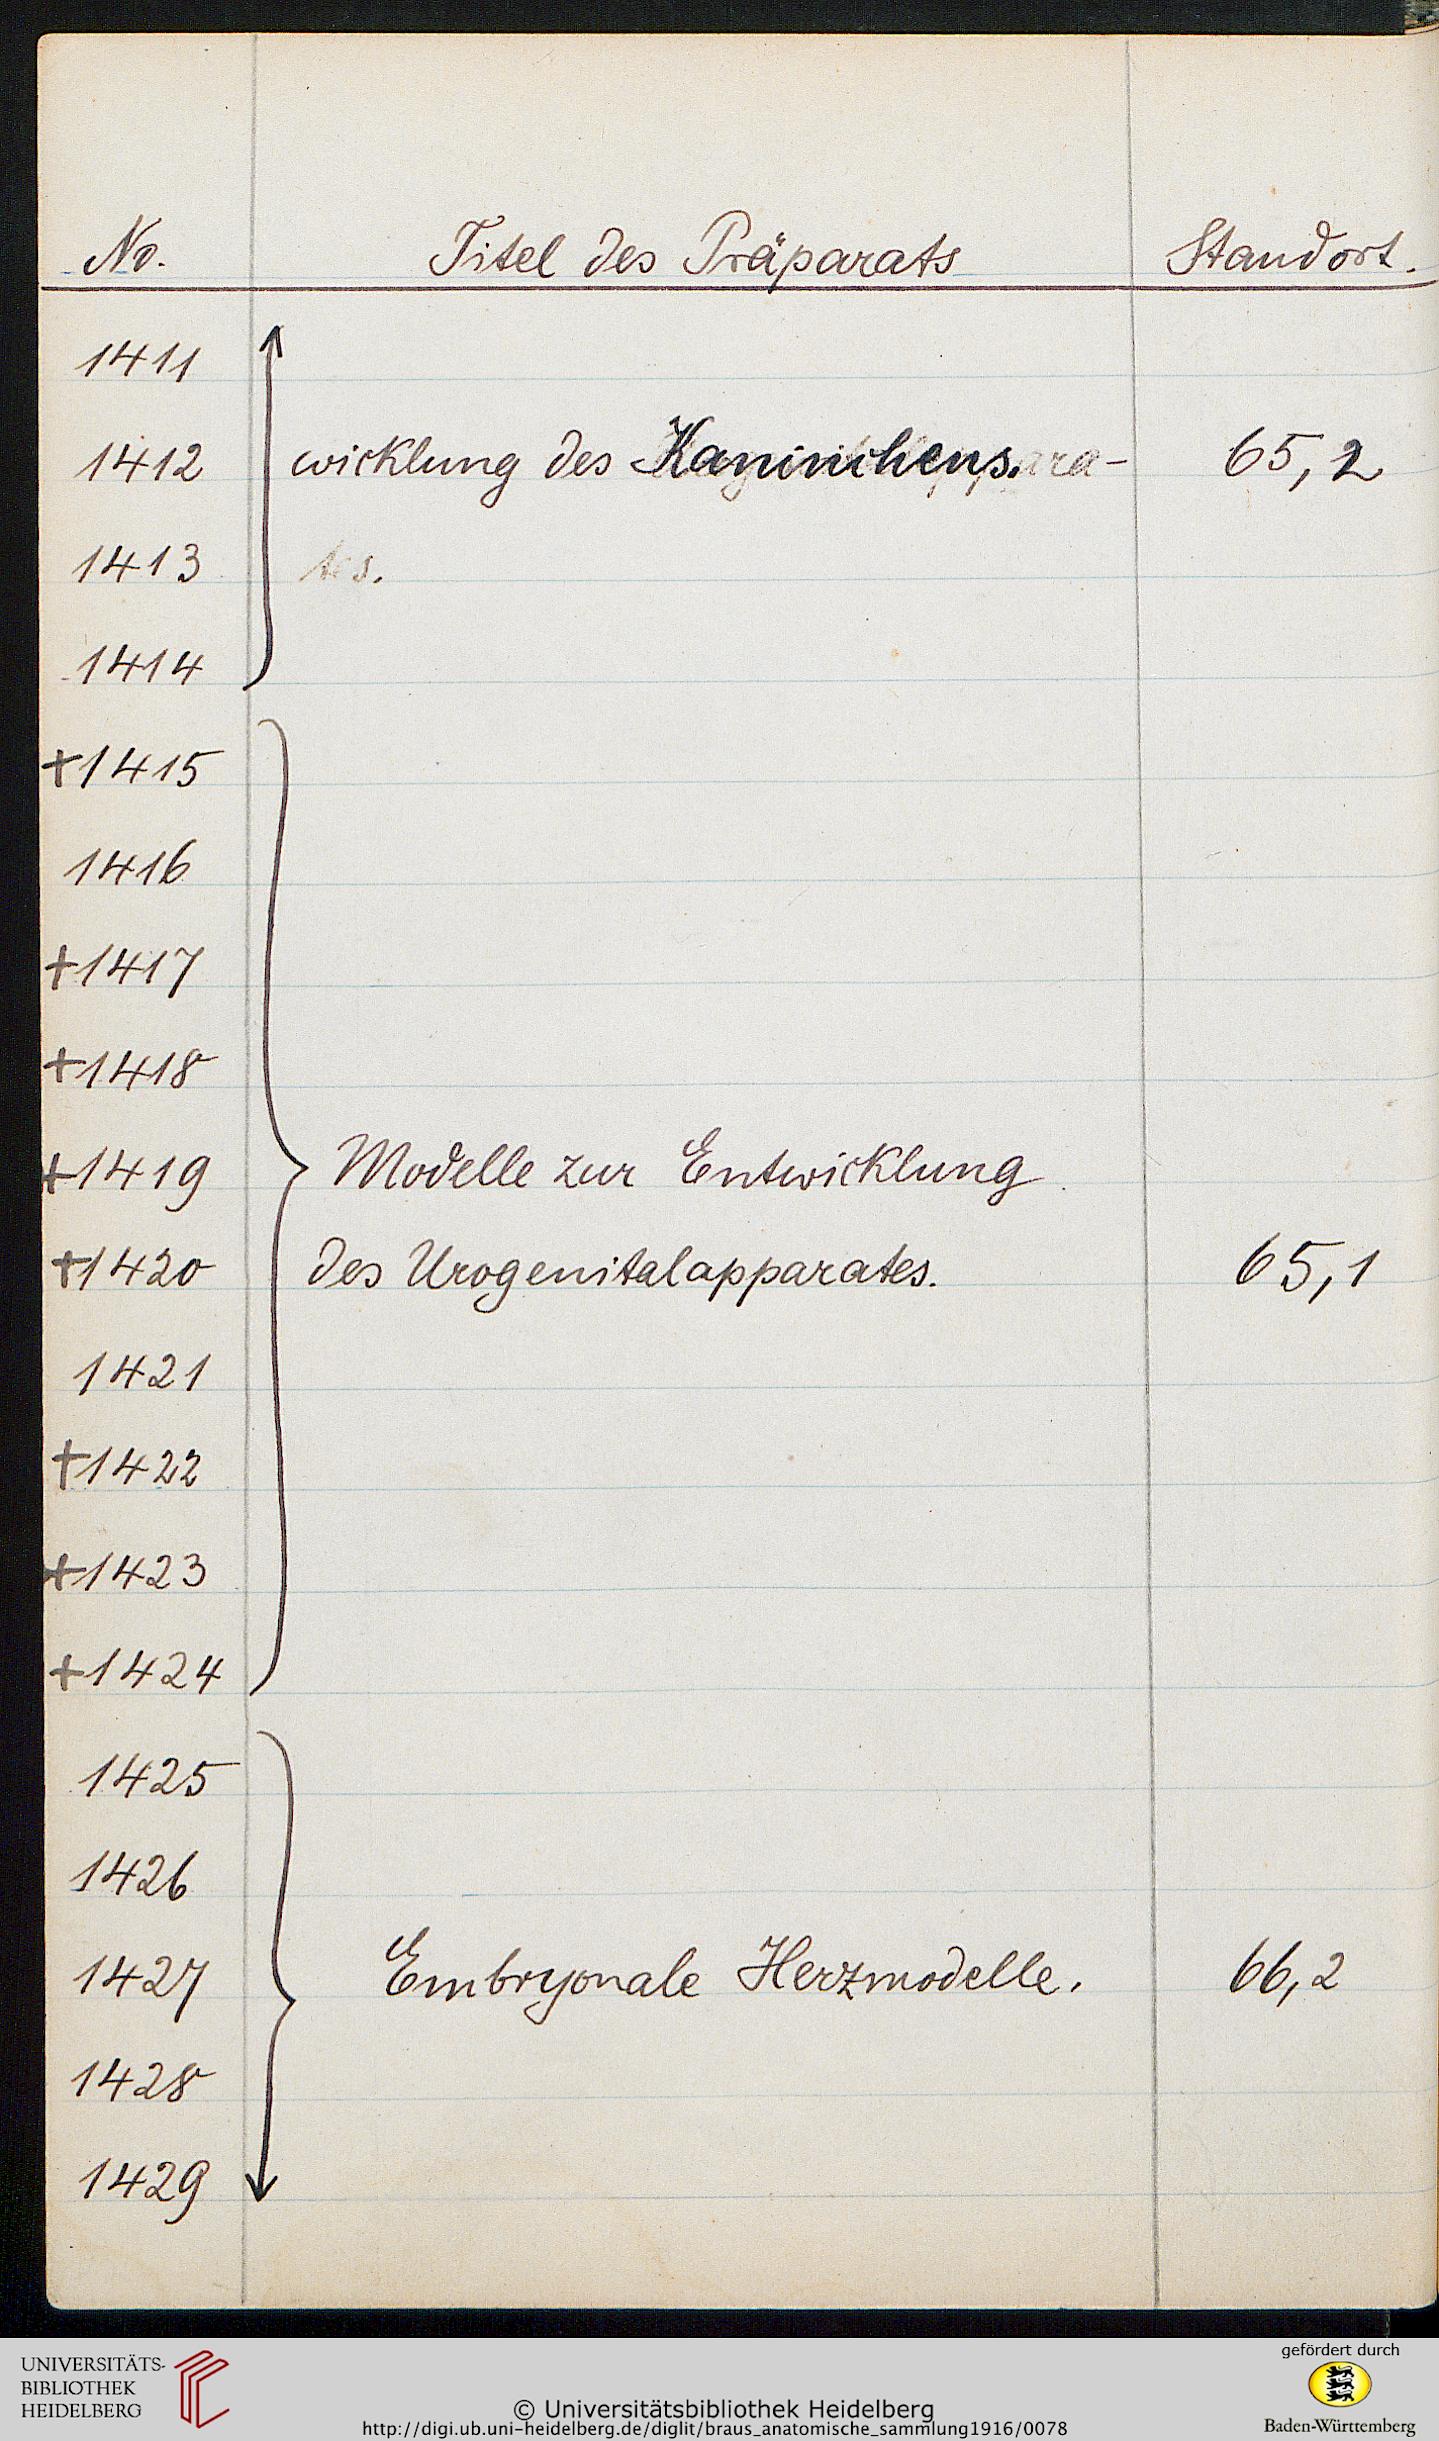 No. Titel des Präparats Standort.
1411
1412 wicklung des Kaninchens. ara- 65,2
1413 tes.
1414
+1415
1416
+1417
+1418
+1419 Modelle zur Entwicklung
+1420 des Urogenitalapparates. 65,1
1421
+1422
+1423
+1424
1425
1426
1427 Embryonale Herzmodelle. 66,2
1428
1429
UNIVERSITÄTS-
BIBLIOTHEK
HEIDELBERG
© Universitätsbibliothek Heidelberg
http://digi.ub.uni-heidelberg.de/diglit/braus_anatomische_sammlung1916/0078
gefördert durch
Baden-Württemberg